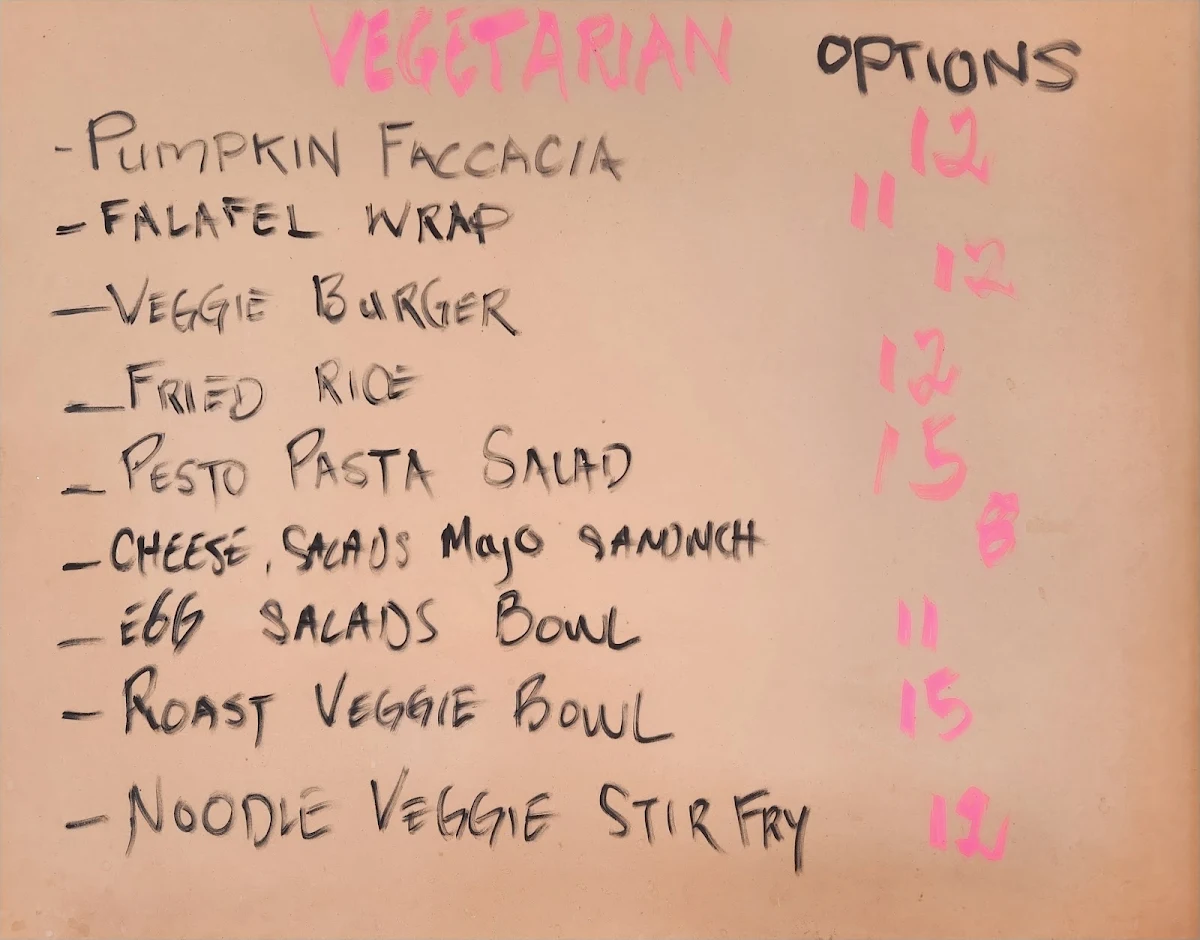 VEGETARIAN OPTIONS
- PUMPKIN FACCACIA 12
- FALAFEL WRAP 11
- VEGGIE BURGER 12
- FRIED RICE 12
- PESTO PASTA SALAD 15
- CHEESE, SALADS MAJO SANDWICH 8
- EGG SALADS BOWL 11
- ROAST VEGGIE BOWL 15
- NOODLE VEGGIE STIR FRY 12